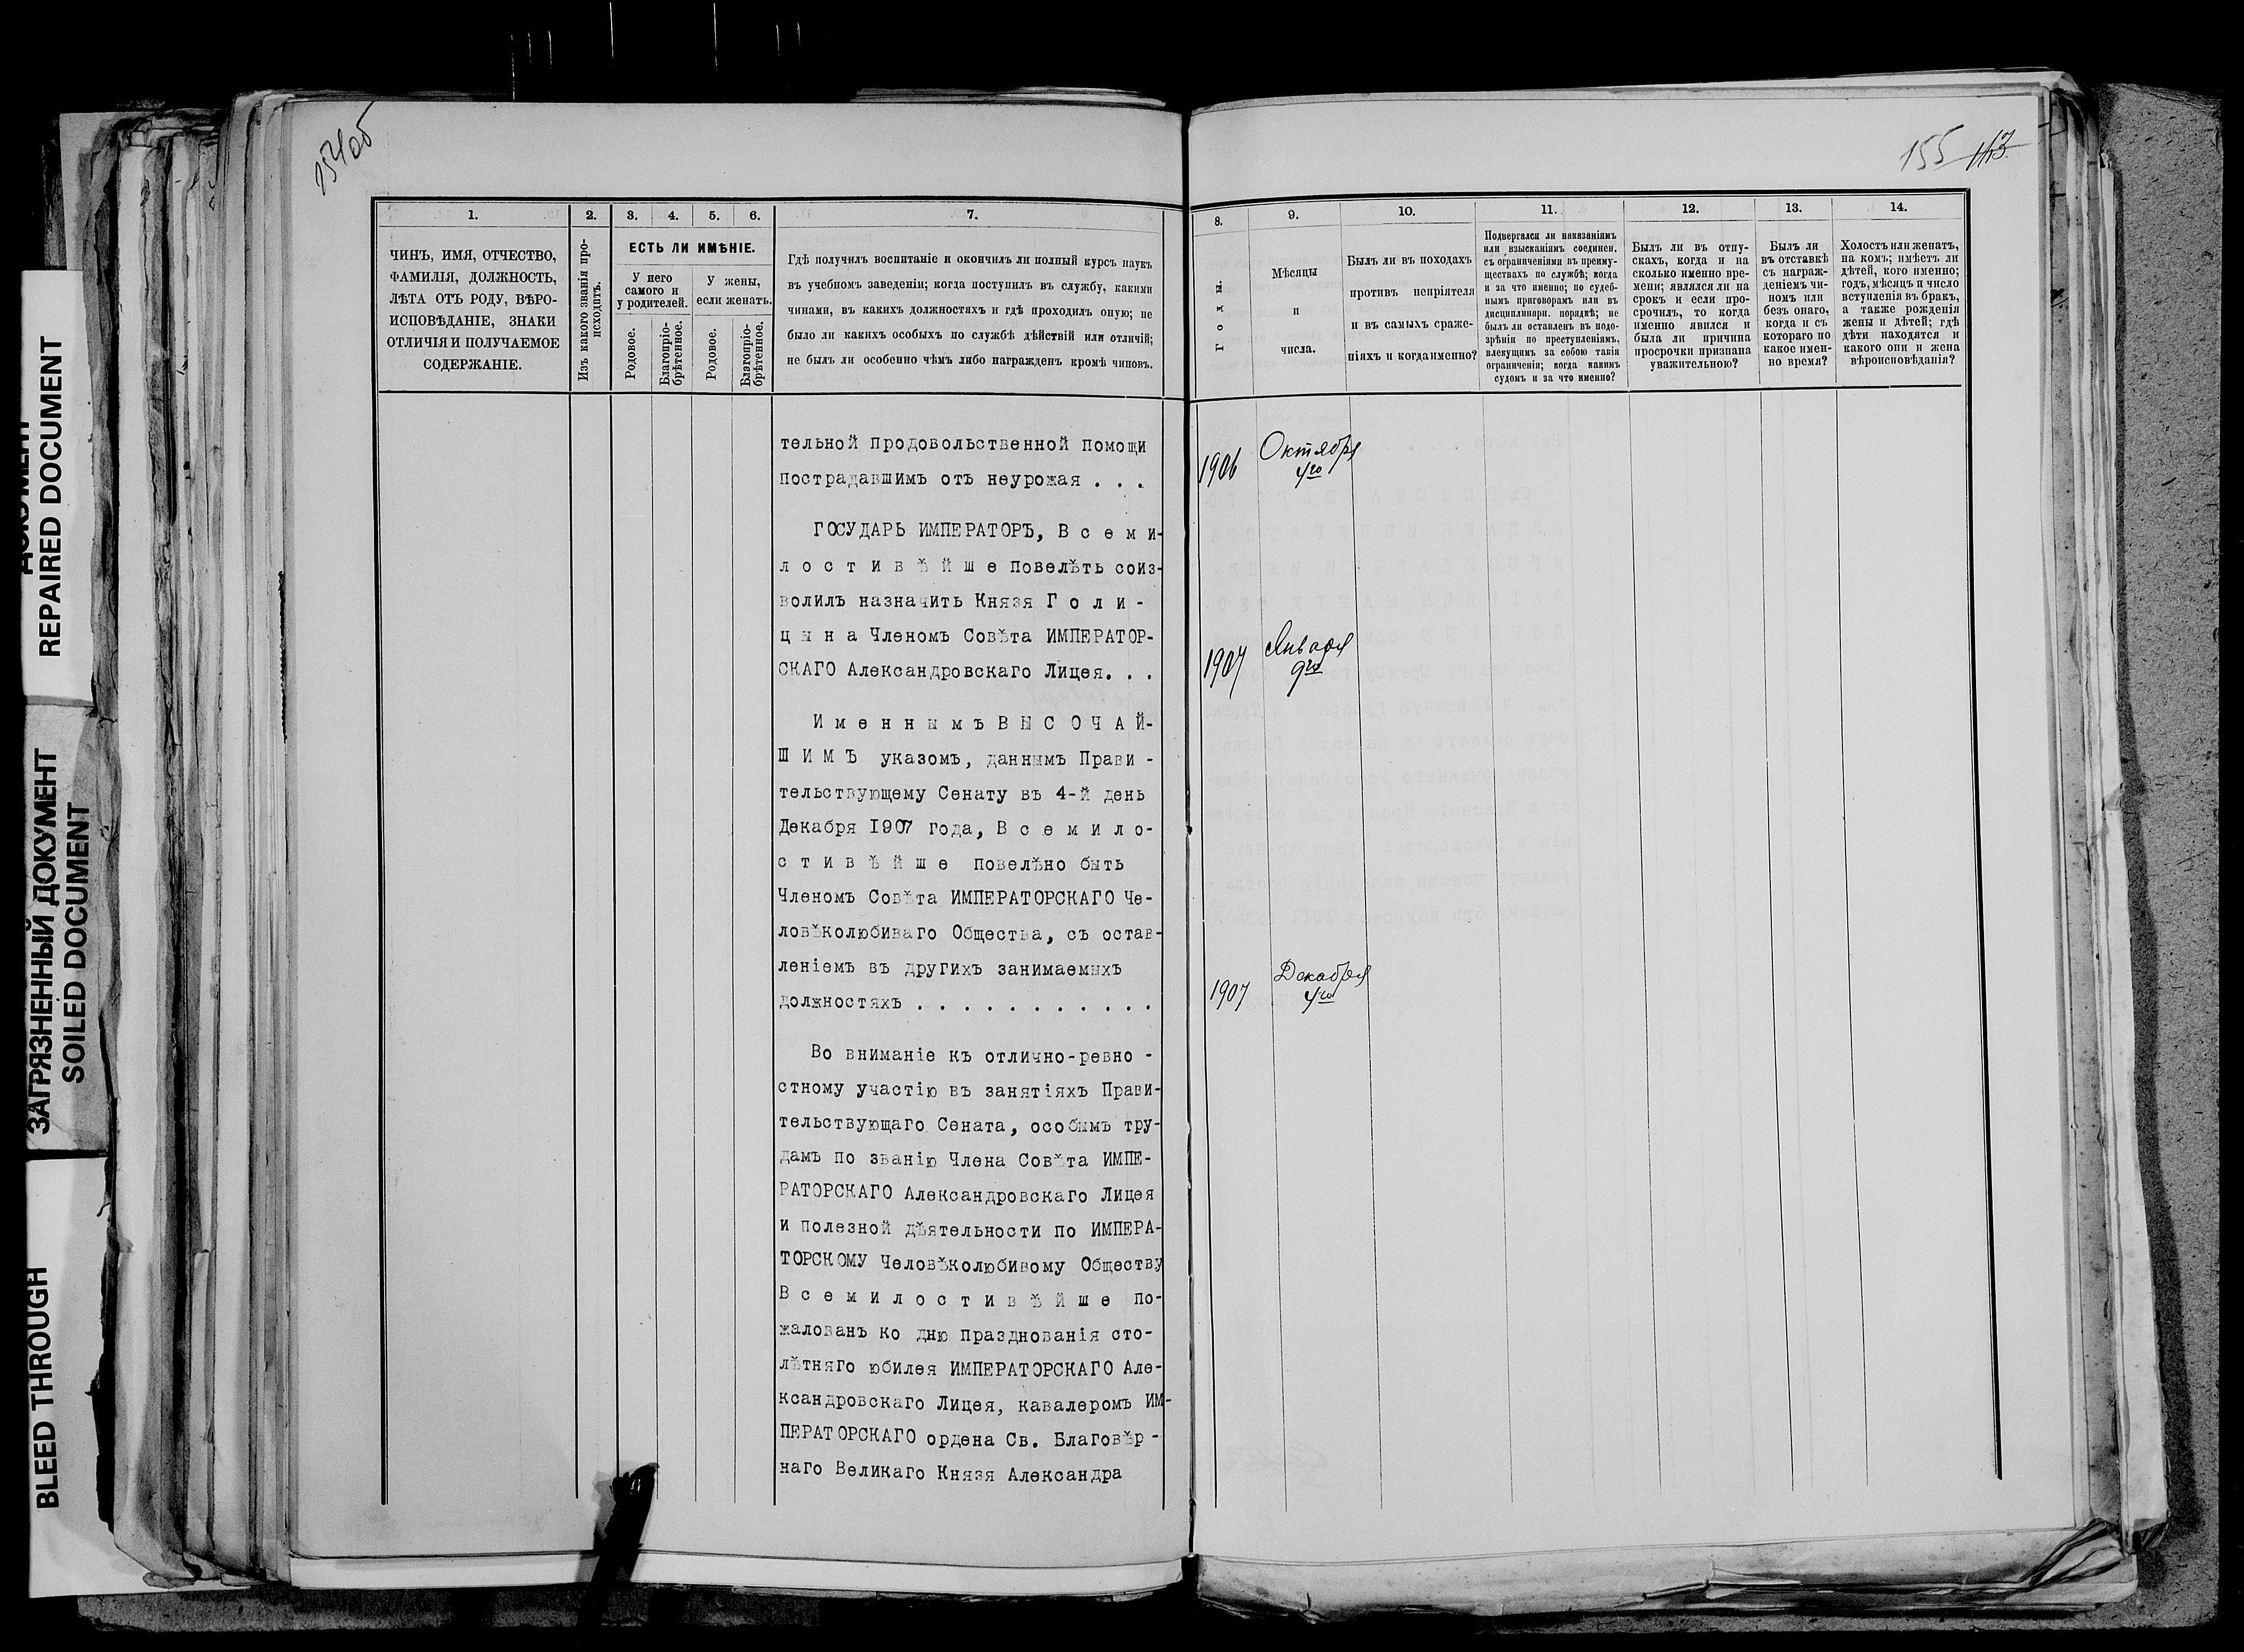 ДОКУМЕНТ
REPAIRED DOCUMENT
ЗАГРЯЗНЕННЫЙ ДОКУМЕНТ
SOILED DOCUMENT
BLEED THROUGH
154об
1.
2.
3.
4.
5.
6.
7.
ЧИНЪ, ИМЯ, ОТЧЕСТВО,
ФАМИЛІЯ, ДОЛЖНОСТЬ,
ЛѢТА ОТЪ РОДУ, ВѢРО-
ИСПОВѢДАНІЕ, ЗНАКИ
ОТЛИЧІЯ И ПОЛУЧАЕМОЕ
СОДЕРЖАНІЕ.
Изъ какого званія про-
исходитъ.
ЕСТЬ ЛИ ИМѢНІЕ.
У него
самого и
у родителей.
У жены,
если женатъ.
Родовое.
Благопріо-
брѣтенное.
Родовое.
Благопріо-
брѣтенное.
Гдѣ получилъ воспитаніе и окончилъ ли полный курсъ наукъ
въ учебномъ заведеніи; когда поступилъ въ службу, какими
чинами, въ какихъ должностяхъ и гдѣ проходилъ оную; не
было ли какихъ особыхъ по службѣ дѣйствій или отличій;
не былъ ли особенно чѣмъ либо награжденъ кромѣ чиновъ.
тельной продовольственной помощи
пострадавшимъ отъ неурожая . . .
ГОСУДАРЬ ИМПЕРАТОРЪ, В с е м и-
л о с т и в ѣ й ш е повелѣть соиз-
волилъ назначить Князя Г о л и -
ц ы н а Членомъ Совѣта ИМПЕРАТОР-
СКАГО Александровскаго Лицея. . .
И м е н н ы м ъ В Ы С О Ч А Й-
Ш И М Ъ указомъ, даннымъ Прави -
тельствующему Сенату въ 4-й день
Декабря 1907 года, В с е м и л о-
с т и в ѣ й ш е повелѣно быть
Членомъ Совѣта ИМПЕРАТОРСКАГО Че-
ловѣколюбиваго Общества, съ остав-
леніемъ въ другихъ занимаемыхъ
должностяхъ . . . . . . . . . . .
Во вниманіе къ отлично-ревно -
стному участію въ занятіяхъ Прави-
тельствующаго Сената, особымъ тру-
дамъ по званію Члена Совѣта ИМПЕ-
РАТОРСКАГО Александровскаго Лицея
и полезной дѣятельности по ИМПЕРА-
ТОРСКОМУ Человѣколюбивому Обществу
В с е м и л о с т и в ѣ й ш е по-
жалованъ ко дню празднованія сто-
лѣтняго юбилея ИМПЕРАТОРСКАГО Але-
ксандровскаго Лицея, кавалеромъ ИМ-
ПЕРАТОРСКАГО ордена Св. Благовѣр -
наго Великаго Князя Александра
155
8.
9.
10.
11.
12.
13.
14.
Годы.
Мѣсяцы
и
числа.
Былъ ли въ походахъ
противъ непріятеля
и въ самыхъ сраже-
ніяхъ и когда именно?
Подвергался ли наказаніямъ
или взысканіямъ соединен.
съ ограниченіями въ преиму-
ществахъ по службѣ; когда
и за что именно; по судеб-
нымъ приговорамъ или въ
дисциплинарн. порядкѣ; не
былъ ли оставленъ въ подо-
зрѣніи по преступленіямъ,
влекущимъ за собою такія
ограниченія; когда какимъ
судомъ и за что именно?
Былъ ли въ отпу-
скахъ, когда и на
сколько именно вре-
мени; являлся ли на
срокъ и если про-
срочилъ, то когда
именно явился и
была ли причина
просрочки признана
уважительною?
Былъ ли
въ отставкѣ
съ награж-
деніемъ чи-
номъ или
безъ онаго,
когда и съ
котораго по
какое имен-
но время?
Холостъ или женатъ,
на комъ; имѣетъ ли
дѣтей, кого именно;
годъ, мѣсяцъ и число
вступленія въ бракъ,
а также рожденія
жены и дѣтей; гдѣ
дѣти находятся и
какого они и жена
вѣроисповѣданія?
1906
Октября
4го
1907
Января
9го
1907
Декабря
4го